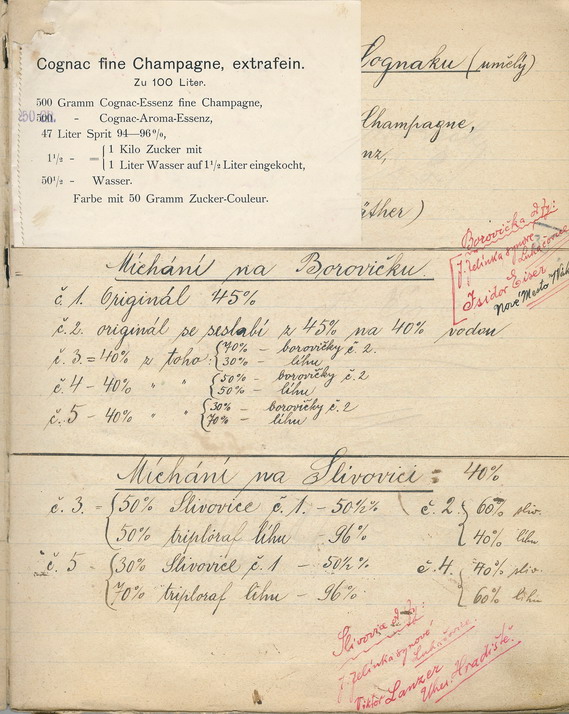 Cognac fine Champagne, extrafein.
Zu 100 Liter.
500 Gramm Cognac-Essenz fine Champagne,
500 „ Cognac-Aroma-Essenz,
47 Liter Sprit 94—96%,
1½ - = { 1 Kilo Zucker mit
1 Liter Wasser auf 1½ Liter eingekocht,
50½ - Wasser.
Farbe mit 50 Gramm Zucker-Couleur.
Cognaku (umělý)
Champagne,
nz,
äther)
Borovička z fy:
J. Jelínka synové
Lukačovice
Isidor Eiser
Nové Mesto
Míchání na Borovičku.
č. 1. Originál 45%
č. 2. originál se seslabí z 45% na 40% vodou
č. 3. = 40% z toho { 70% - borovičky č. 2.
30% - líhu
č. 4 - 40% " " { 50% - borovičky č. 2
50% - líhu
č. 5 - 40% " " { 30% - borovičky č. 2
70% - líhu
Míchání na Slivovici = 40%
č. 3. = { 50% Slivovice č. 1. - 50½%
50% triplóraf líhu - 96%
č. 2. { 60% sliv.
40% líhu
č. 5 - { 30% Slivovice č. 1 - 50½%
70% triplóraf líhu - 96%
č. 4. { 40% sliv.
60% líhu
Slivovice z fy:
J. Jelínka synové
Lukačovice.
Viktor Lanzer
Uher. Hradiště.